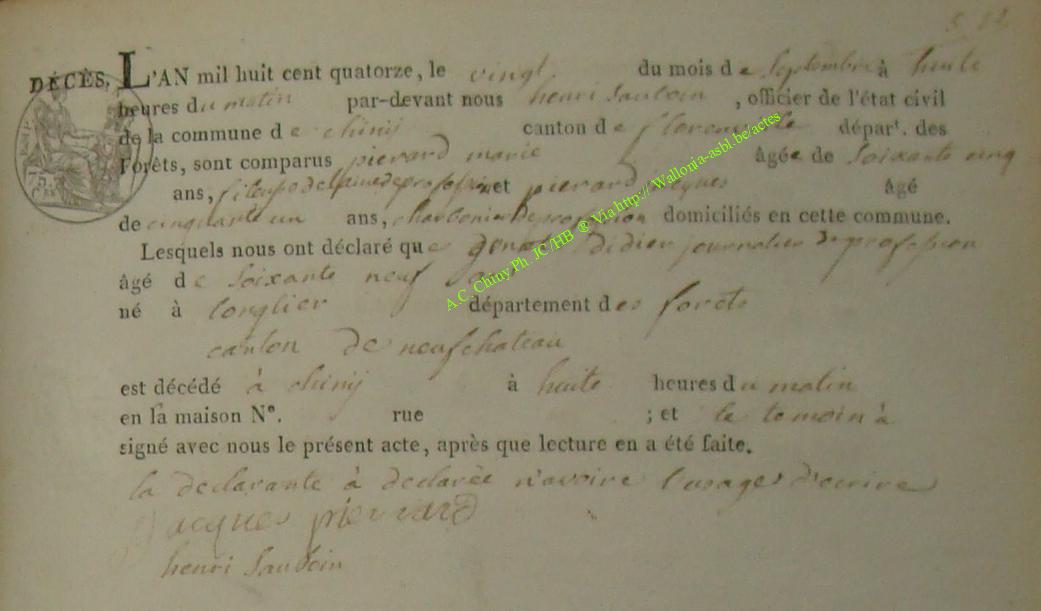 DÉCÈS. L'AN mil huit cent quatorze, le vingt du mois de Septembre à huite
heures du matin par-devant nous henri Sauboin, officier de l'état civil
de la commune de chinij canton de florenville départ. des
Forêts, sont comparus pierard marie âgée de Soixante cinq
ans, fileuse de profession et pierard âgé
de cinquante un ans, charbonier de profession domiciliés en cette commune.
Lesquels nous ont déclaré que didier journalier de profession
âgé de Soixante neuf ans
né à longlier département des forets
canton de neufchateau
est décédé à chinij à huite heures du matin
en la maison N°. rue ; et le temoin à
signé avec nous le présent acte, après que lecture en a été faite.
la declarante à declarée n'avoire l'usages d'ecrire
Jacques pierrard
henri Sauboin
A.C. Chiny Ph. JC/HB ® Via http://Wallonia-asbl.be/actes